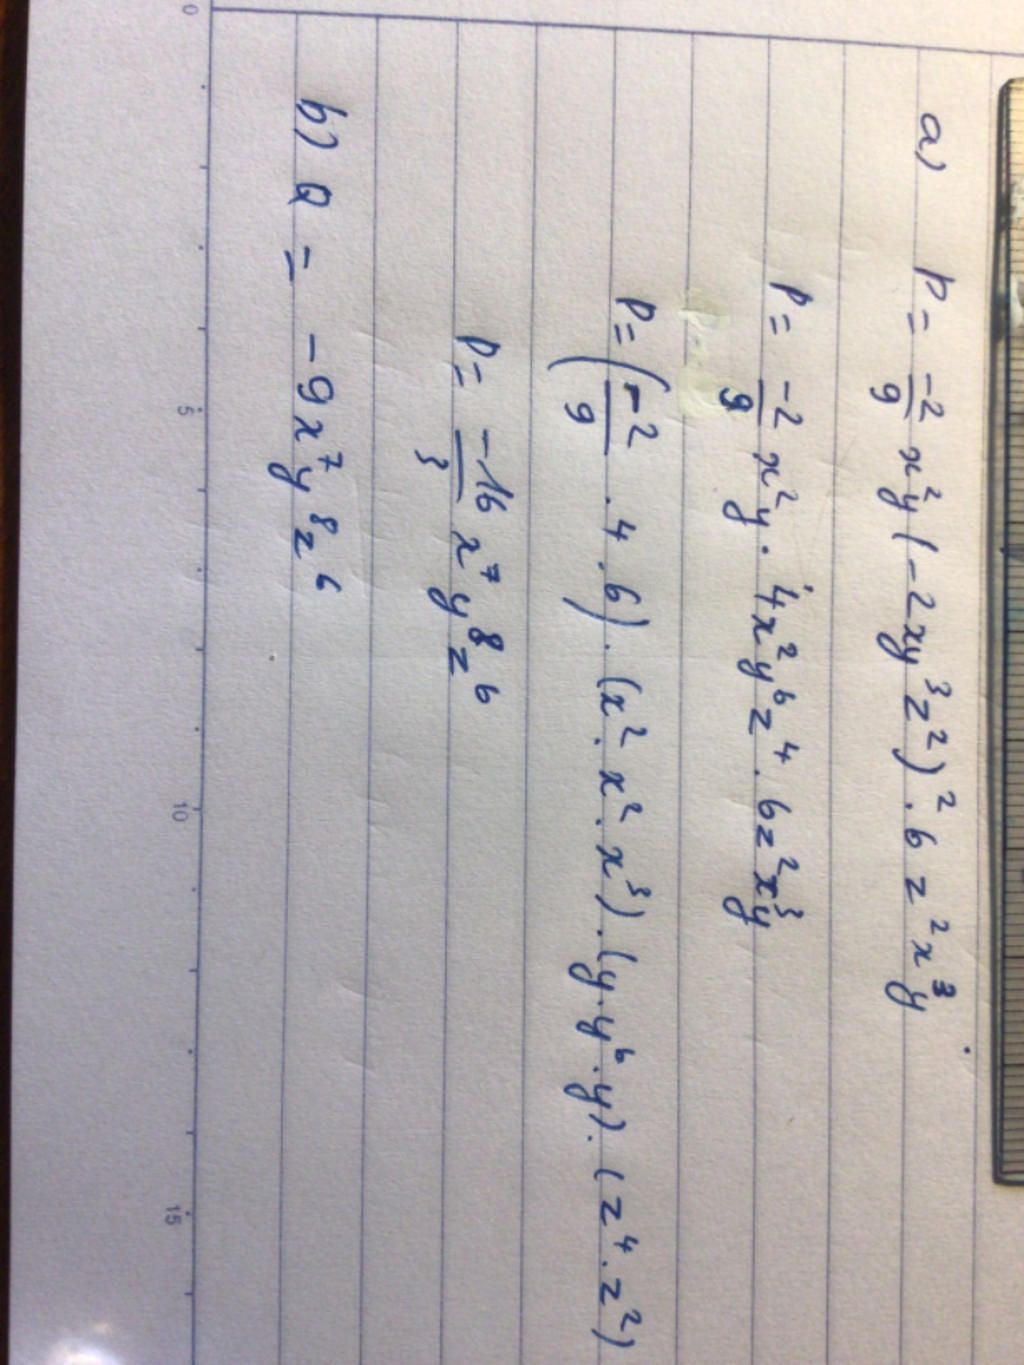 a) P = -2/9 x²y (-2xy³z²)² . 6z²x³y
P = -2/9 x²y . 4x²y⁶z⁴ . 6z²x³y
P = (-2/9 . 4 . 6) . (x² . x² . x³) . (y . y⁶ . y) . (z⁴ . z²)
P = -16/3 x⁷y⁸z⁶
b) Q = -9x⁷y⁸z⁶
0 5 10 15